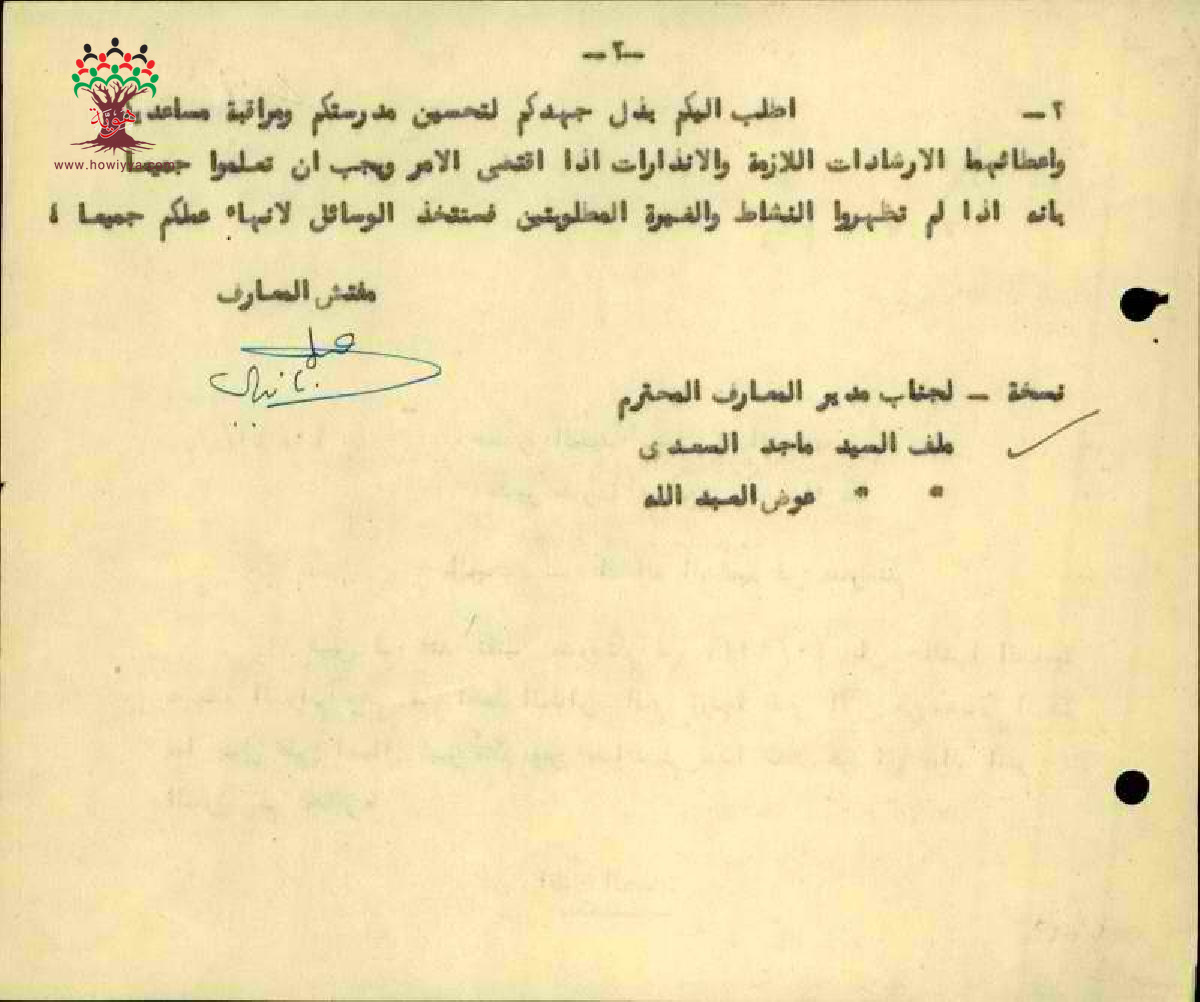 -٢-
٢ - اطلب اليكم بذل جهدكم لتحسين مدرستكم ومراقبة
واعطائهما الارشادات اللازمة والانذارات اذا اقتضى الامر ويجب ان تعلموا جميعا
بانه اذا لم تظهروا النشاط والغيرة المطلوبتين فسنتخذ الوسائل لانهاء عملكم جميعا ؛
مفتش المعارف
نسخة - لجناب مدير المعارف المحترم
ملف السيد ماجد السعدى
" " عوض العبد الله
هوية
www.howiyya.com